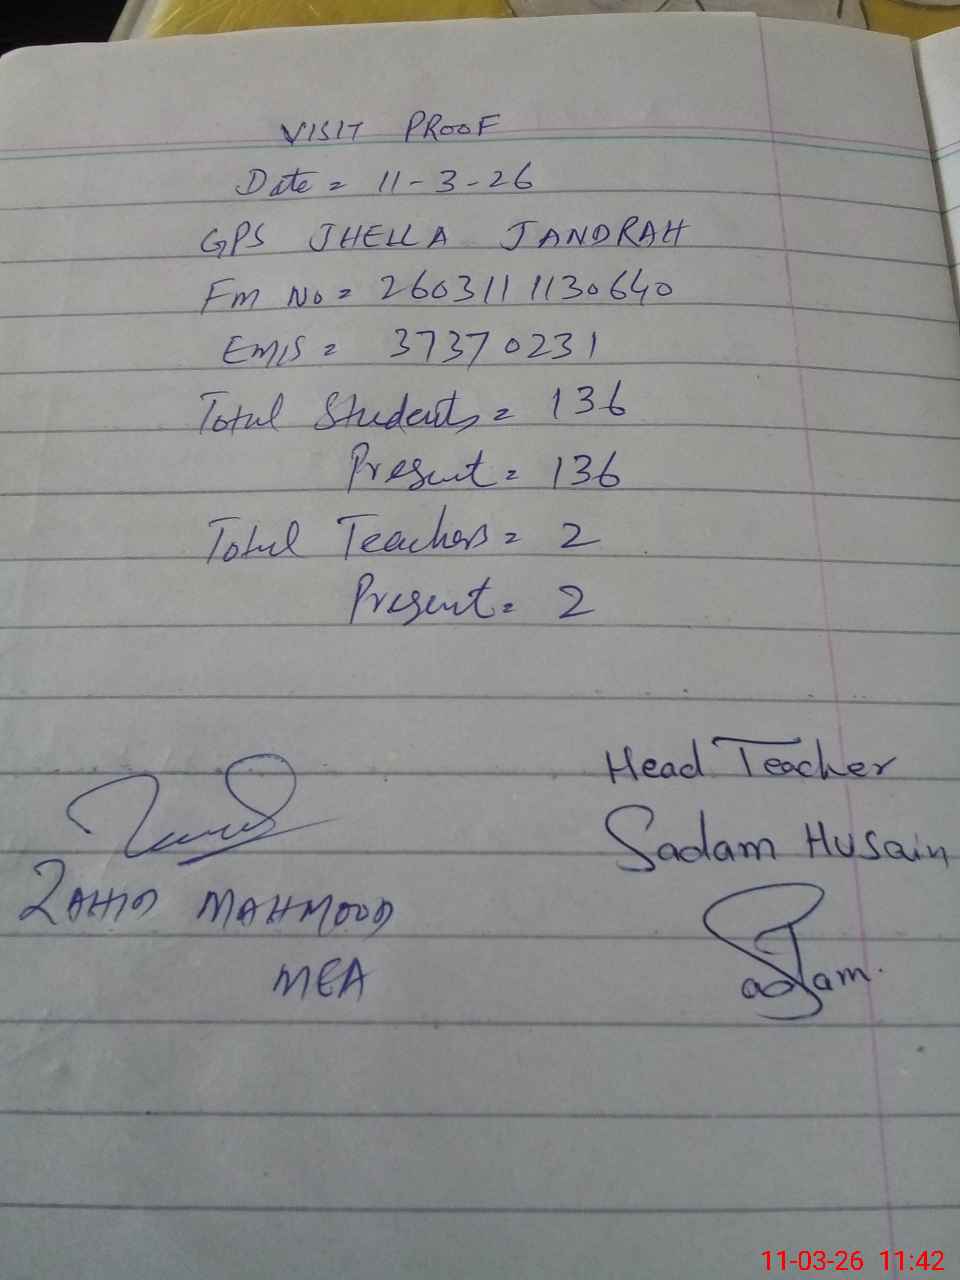 VISIT PROOF
Date = 11-3-26
GPS JHELLA JANDRAH
Fm No = 2603111130640
EMIS = 37370231
Total Students = 136
Present = 136
Total Teachers = 2
Present = 2
Head Teacher
Sadam Husain
Sadam.
ZAHID MAHMOOD
MEA
11-03-26 11:42